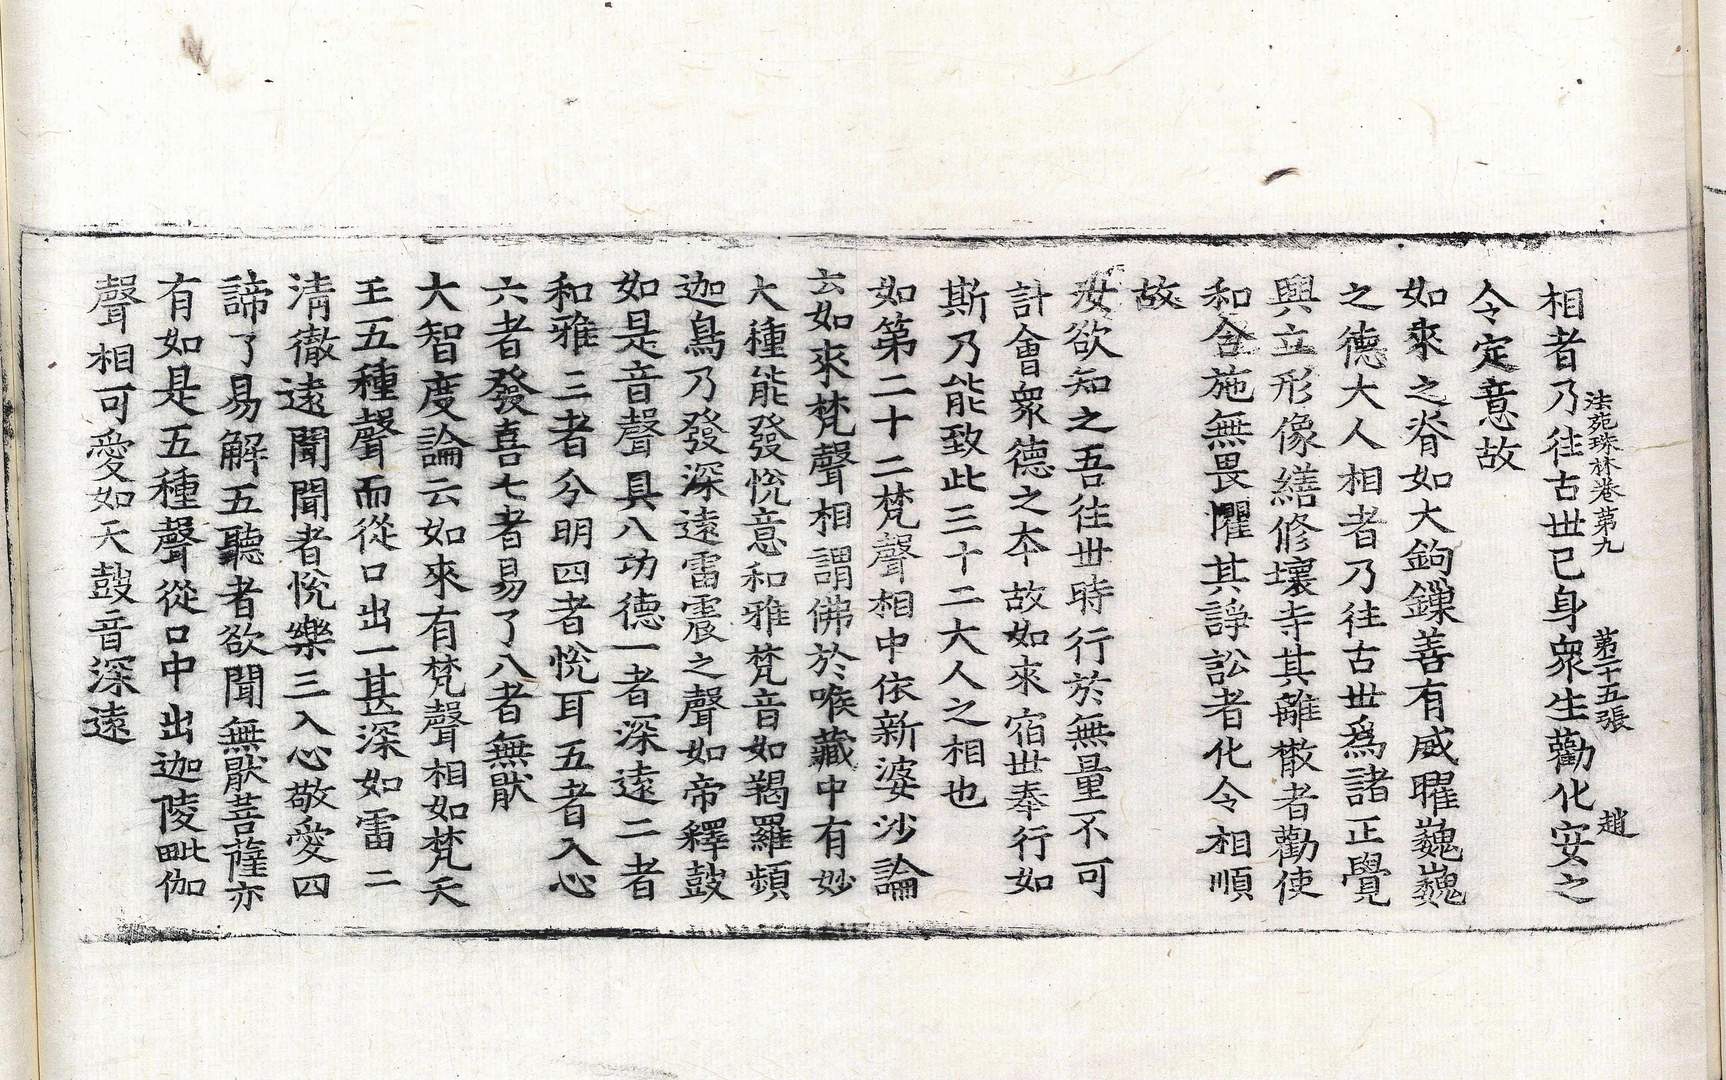 法苑珠林卷第九　第二十五張　趙
相者乃往古世已身衆生勸化安之
令定意故
如來之脊如大鉤鏁善有威曜巍巍
之德大人相者乃往古世爲諸正覺
興立形像繕修壞寺其離散者勸使
和合施無畏懼其諍訟者化令相順
故
汝欲知之吾往世時行於無量不可
計會衆德之本故如來宿世奉行如
斯乃能致此三十二大人之相也
如第二十二梵聲相中依新婆沙論
云如來梵聲相謂佛於喉藏中有妙
大種能發悅意和雅梵音如羯羅頻
迦鳥乃發深遠雷震之聲如帝釋鼓
如是音聲具八功德一者深遠二者
和雅三者分明四者悅耳五者入心
六者發喜七者易了八者無猒
大智度論云如來有梵聲相如梵天
王五種聲而從口出一甚深如雷二
清徹遠聞聞者悅樂三入心敬愛四
諦了易解五聽者欲聞無猒菩薩亦
有如是五種聲從口中出迦陵毗伽
聲相可愛如天鼓音深遠